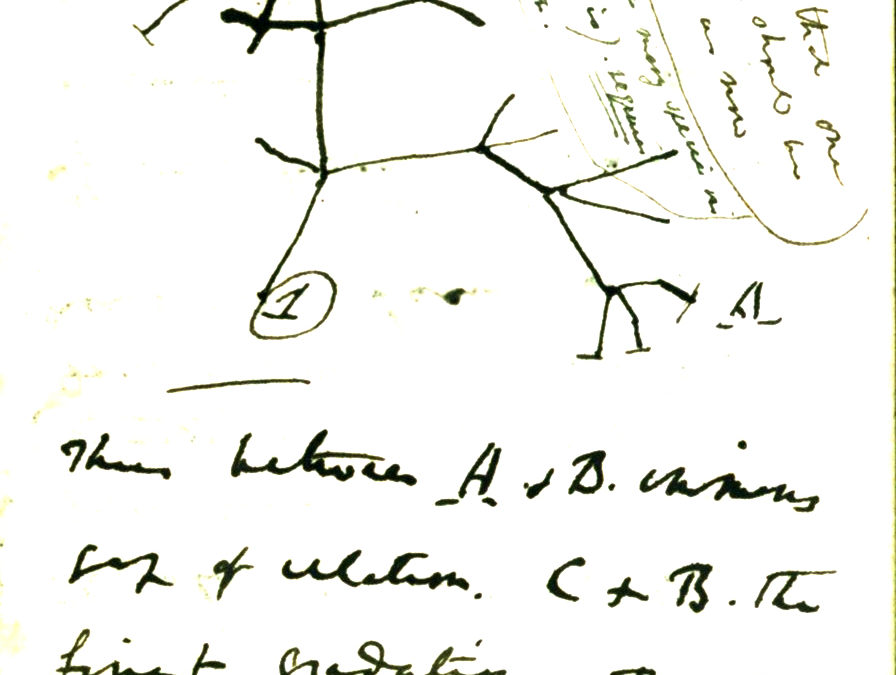 that one
should be
as now
many species in
is). requires
1
A
Thus between A & B. immens
gap of relation. C & B. The
finest gradation